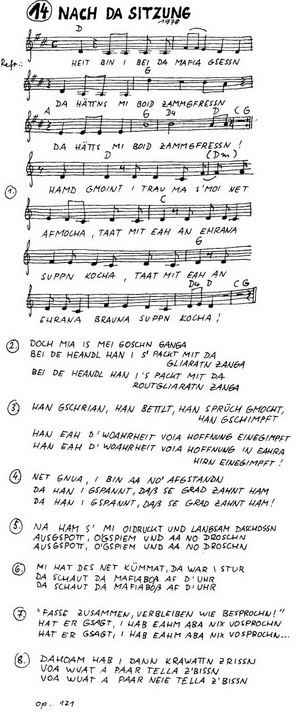 14 NACH DA SITZUNG
1978
D
Refr.:
HEIT BIN I BEI DA MAFIA GSESSN
G
DA HÄTTNS MI BOID ZAMMGFRESSN
A G D4 D C G
DA HÄTTS MI BOID ZAMMGFRESSN!
D (Dm)
1. HAMD GMOINT I TRAU MA S'MOI NET
C
AFMOCHA, TAAT MIT EAH AN EHRANA
G
SUPPN KOCHA, TAAT MIT EAH AN
D4 D C G
EHRANA BRAUNA SUPPN KOCHA!
2. DOCH MIA IS MEI GOSCHN GANGA
BEI DE HEANDL HAN I S' PACKT MIT DA
GLIARATN ZANGA
BEI DE HEANDL HAN I'S PACKT MIT DA
ROUTGLIARATN ZANGA
3. HAN GSCHRIAN, HAN BETTLT, HAN SPRÜCH GMOCHT,
HAN GSCHIMPFT
HAN EAH D'WOAHRHEIT VOIA HOFFNUNG EINEGIMPFT
HAN EAH D'WOAHRHEIT VOIA HOFFNUNG IN EAHRA
HIRN EINEGIMPFT!
4. NET GNUA, I BIN AA NO' AFGSTANDN
DA HAN I GSPANNT, DAß SE GRAD ZAHNT HAM
DA HAN I GSPANNT, DAß SE GRAD ZAHNT HAM!
5. NA HAM S' MI OIDRUCKT UND LANGSAM DASCHOSSN
AUSGSPOTT, O'GSPIEM UND AA NO DROSCHN
AUSGSPOTT, O'GSPIEM UND AA NO DROSCHN
6. MI HAT DES NET KÜMMAT, DA WAR I STUR
DA SCHAUT DA MAFIABOß AF D'UHR
DA SCHAUT DA MAFIABOß AF D'UHR
7. "FASSE ZUSAMMEN, VERBLEIBEN WIE BESPROCHN!"
HAT ER GSAGT, I HAB EAHM ABA NIX VOSPROCHN
HAT ER GSAGT, I HAB EAHM ABA NIX VOSPROCHN...
8. DAHOAM HAB I DANN KRAWATTN ZRISSN
VOA WUAT A PAAR TELLA Z'BISSN
VOA WUAT A PAAR NEIE TELLA Z'BISSN
op. 121